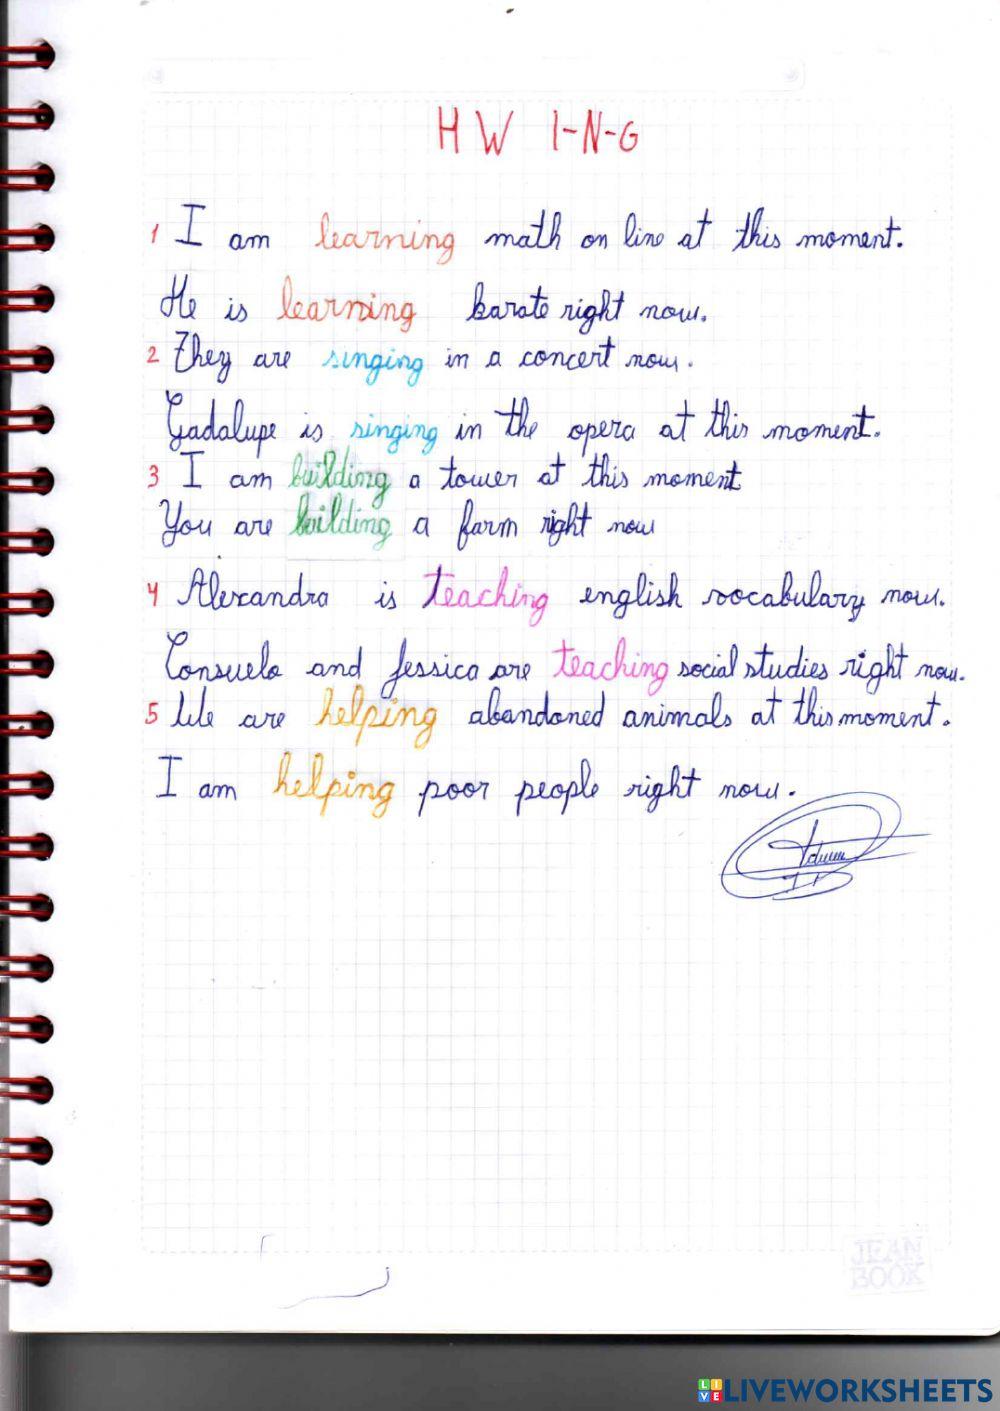 HW I-N-G
1 I am learning math on line at this moment.
He is learning karate right now.
2 They are singing in a concert now.
Gadalupe is singing in the opera at this moment.
3 I am building a tower at this moment
You are building a farm right now
4 Alexandra is teaching english vocabulary now.
Consuelo and Jessica are teaching social studies right now.
5 We are helping abandoned animals at this moment.
I am helping poor people right now.
JEAN
BOOK
LIVE LIVEWORKSHEETS